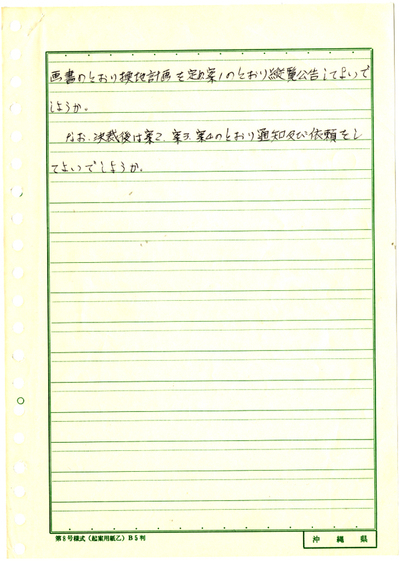 画書のとおり換地計画を定め案1のとおり縦覧公告してよいで
しょうか。
なお、決裁後は案2、案3、案4のとおり通知及び依頼をし
てよいでしょうか。
第8号様式(起案用紙乙)B5判
沖縄県